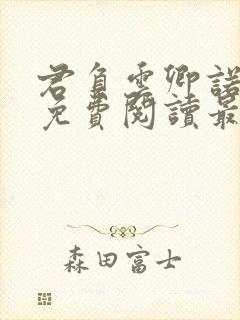 君負雲卿諾
免費閱讀最
森田富士